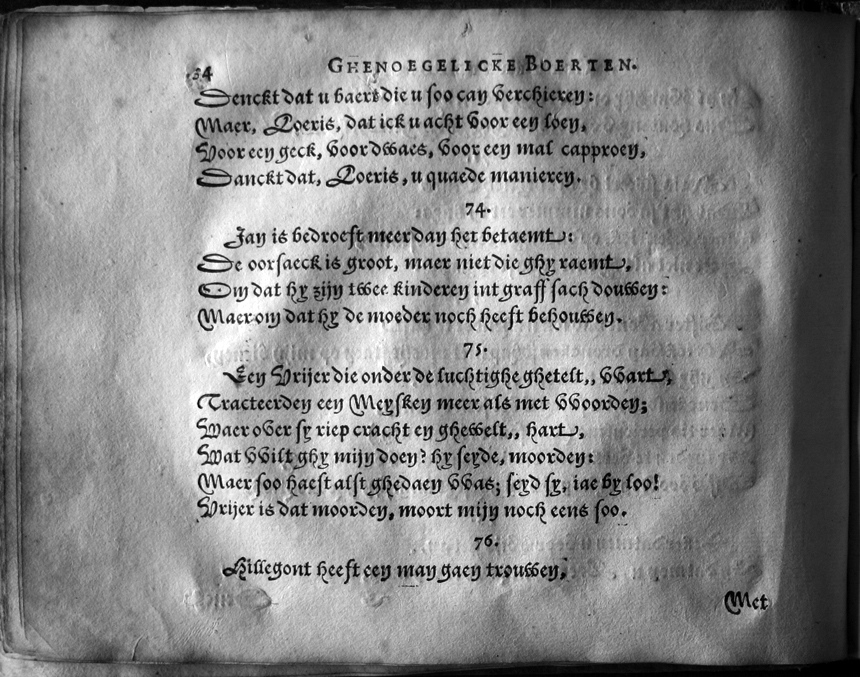 34 GHENOEGELICKE BOERTEN.
Denckt dat u baert die u soo can verchieren:
Maer, Loeris, dat ick u acht voor een loen,
Voor een geck, voor dwaes, voor een mal capproen,
Danckt dat, Loeris, u quaede manieren.
74.
Jan is bedroeft meer dan het betaemt:
De oorsaeck is groot, maer niet die ghy raemt,
Om dat hy zijn twee kinderen int graff sach douwen:
Maer om dat hy de moeder noch heeft behouwen.
75.
Een Vrijer die onder de luchtighe ghetelt,, wart,
Tracteerden een Meysken meer als met woorden;
Waer over sy riep cracht en ghewelt,, hart,
Wat wilt ghy mijn doen? hy seyde, moorden:
Maer soo haest alst ghedaen was; seyd sy, iae by loo!
Vrijer is dat moorden, moort mijn noch eens soo.
76.
Hillegont heeft een man gaen trouwen,
Met